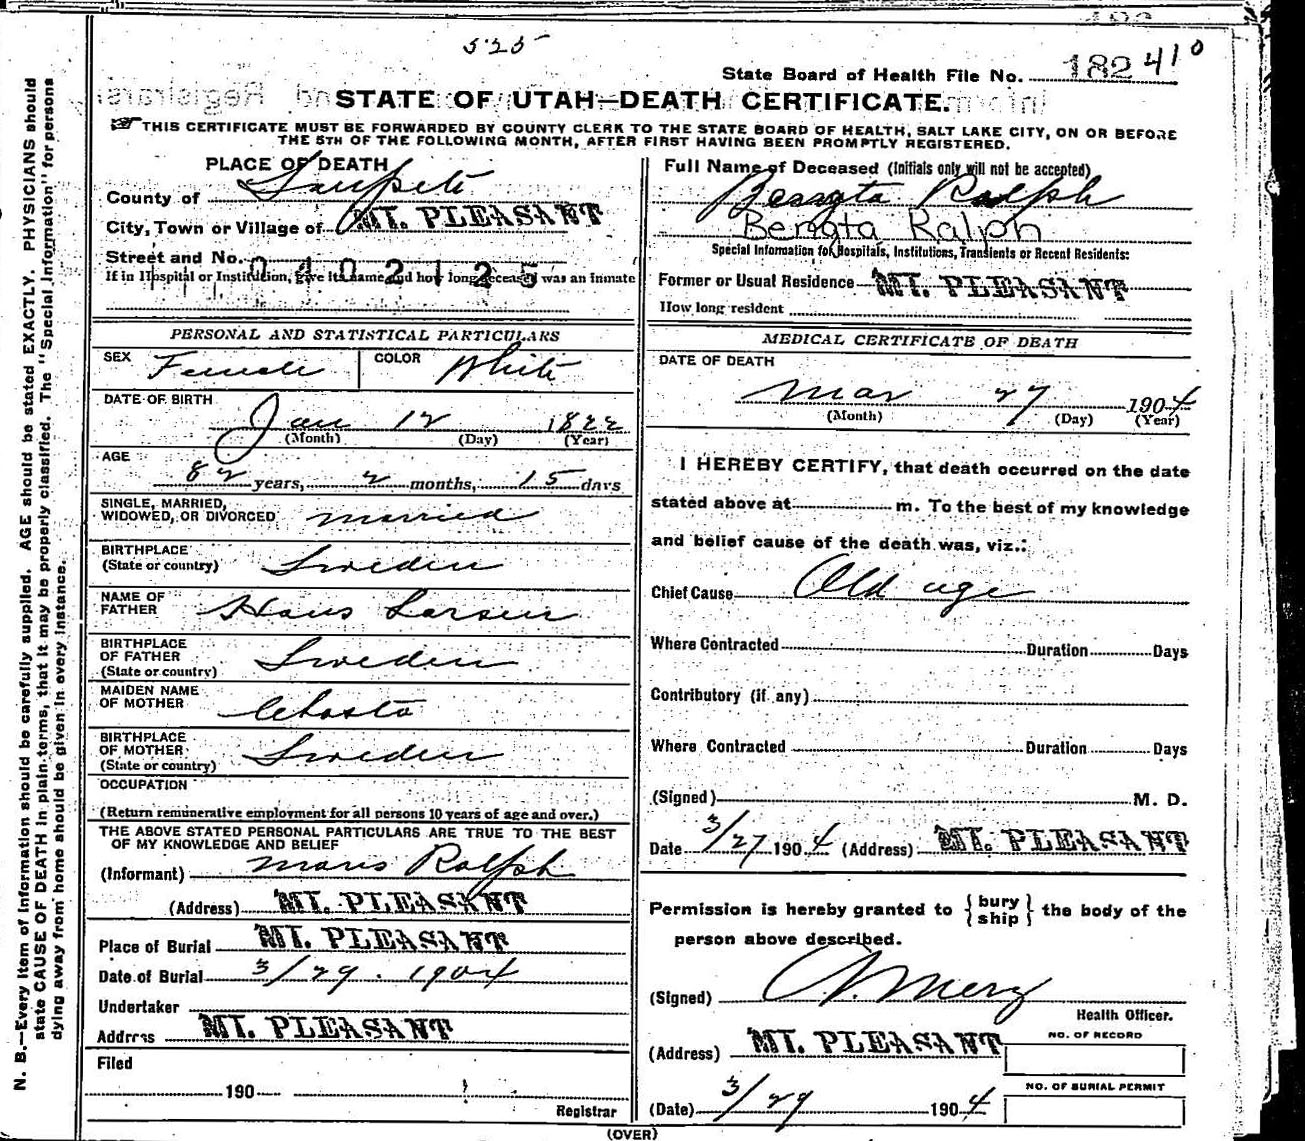 525
State Board of Health File No. 182 410
STATE OF UTAH—DEATH CERTIFICATE.
THIS CERTIFICATE MUST BE FORWARDED BY COUNTY CLERK TO THE STATE BOARD OF HEALTH, SALT LAKE CITY, ON OR BEFORE
THE 5TH OF THE FOLLOWING MONTH, AFTER FIRST HAVING BEEN PROMPTLY REGISTERED.
PLACE OF DEATH
County of Sanpete
City, Town or Village of MT. PLEASANT
Street and No.
0402125
If in Hospital or Institution, give its name and how long deceased was an inmate
Full Name of Deceased (Initials only will not be accepted)
Bengta Ralph
Bengta Ralph
Special Information for Hospitals, Institutions, Transients or Recent Residents:
Former or Usual Residence MT. PLEASANT
How long resident
PERSONAL AND STATISTICAL PARTICULARS
SEX Female COLOR White
DATE OF BIRTH
Jan 12 1822
(Month) (Day) (Year)
AGE
82 years, 2 months, 15 days
SINGLE, MARRIED,
WIDOWED, OR DIVORCED married
BIRTHPLACE
(State or country) Sweden
NAME OF
FATHER Hans Larsen
BIRTHPLACE
OF FATHER
(State or country) Sweden
MAIDEN NAME
OF MOTHER
BIRTHPLACE
OF MOTHER
(State or country) Sweden
OCCUPATION
(Return remunerative employment for all persons 10 years of age and over.)
THE ABOVE STATED PERSONAL PARTICULARS ARE TRUE TO THE BEST
OF MY KNOWLEDGE AND BELIEF
(Informant) Ralph
(Address) MT. PLEASANT
Place of Burial MT. PLEASANT
Date of Burial 3/29. 1904
Undertaker
Address MT. PLEASANT
Filed
190
Registrar
MEDICAL CERTIFICATE OF DEATH
DATE OF DEATH
Mar 27 1904
(Month) (Day) (Year)
I HEREBY CERTIFY, that death occurred on the date
stated above at m. To the best of my knowledge
and belief cause of the death was, viz.:
Chief Cause Old age
Where Contracted Duration Days
Contributory (if any)
Where Contracted Duration Days
(Signed) M. D.
Date 3/27 1904 (Address) MT. PLEASANT
Permission is hereby granted to { bury
ship } the body of the
person above described.
(Signed) Merz
Health Officer.
(Address) MT. PLEASANT
NO. OF RECORD
(Date) 3/29 1904
NO. OF BURIAL PERMIT
(OVER)
N. B.—Every item of information should be carefully supplied. AGE should be stated EXACTLY. PHYSICIANS should
state CAUSE OF DEATH in plain terms, that it may be properly classified. The "Special Information" for persons
dying away from home should be given in every instance.